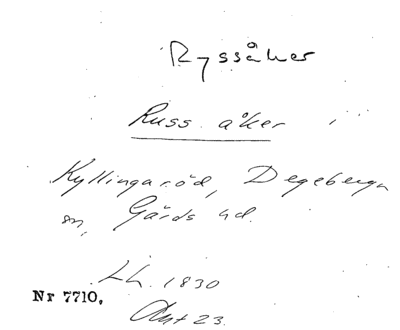 Ryssåker
Russ åker
Kyllingaröd, Degeberga
sn, Gärds hd.
Lh. 1830
Akt 23.
Nr 7710.